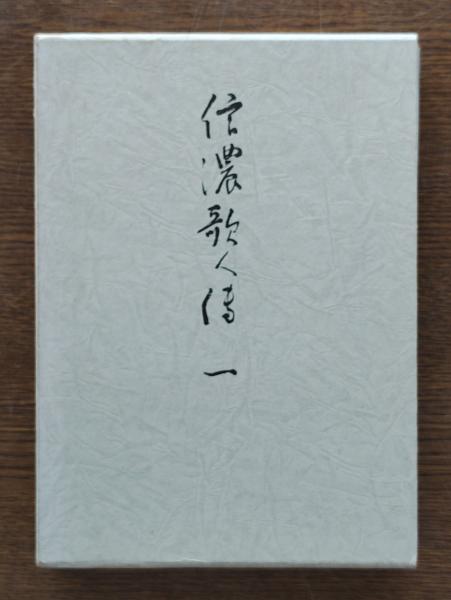 信濃歌人傳 一